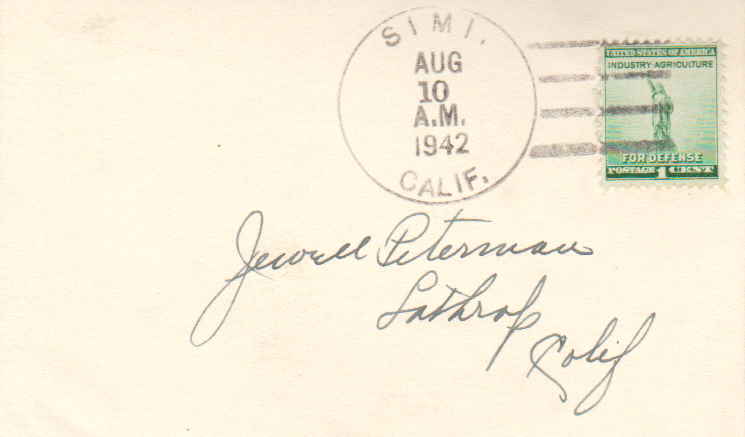 SIMI.
AUG
10
A.M.
1942
CALIF.
UNITED STATES OF AMERICA
INDUSTRY·AGRICULTURE
FOR DEFENSE
POSTAGE 1 CENT
Jewell Peterman
Lathrop
Calif